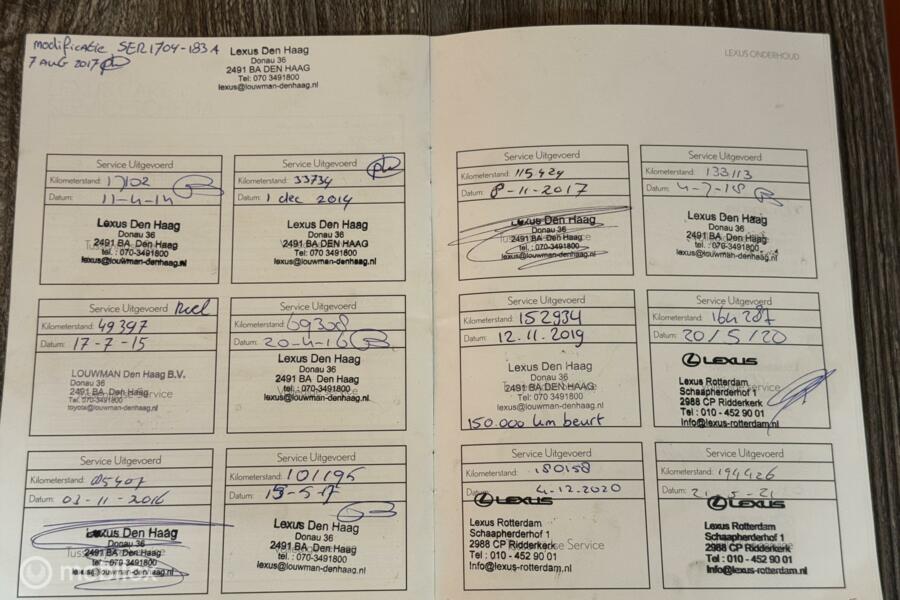 modificatie SER1704-183A
7 AUG 2017
Lexus Den Haag
Donau 36
2491 BA DEN HAAG
Tel: 070 3491800
lexus@louwman-denhaag.nl
Service Uitgevoerd
Kilometerstand: 17102
Datum: 11-4-14
Lexus Den Haag
Donau 36
2491 BA Den Haag
tel. : 070-3491800
lexus@louwman-denhaag.nl
Service Uitgevoerd
Kilometerstand: 33734
Datum: 1 dec 2014
Lexus Den Haag
Donau 36
2491 BA Den Haag
tel. : 070-3491800
lexus@louwman-denhaag.nl
Service Uitgevoerd
Kilometerstand: 49397
Datum: 17-7-15
LOUWMAN Den Haag B.V.
Donau 36
2491 BA Den Haag
Tel. 070-3491800
toyota@louwman-denhaag.nl
Service Uitgevoerd
Kilometerstand: 69308
Datum: 20-4-16
Lexus Den Haag
Donau 36
2491 BA Den Haag
tel. : 070-3491800
lexus@louwman-denhaag.nl
Service Uitgevoerd
Kilometerstand: 85407
Datum: 03-11-2016
Lexus Den Haag
Donau 36
2491 BA Den Haag
tel. : 070-3491800
lexus@louwman-denhaag.nl
Service Uitgevoerd
Kilometerstand: 101195
Datum: 15-5-17
Lexus Den Haag
Donau 36
2491 BA Den Haag
tel. : 070-3491800
lexus@louwman-denhaag.nl
LEXUS ONDERHOUD
Service Uitgevoerd
Kilometerstand: 115424
Datum: 8-11-2017
Lexus Den Haag
Donau 36
2491 BA Den Haag
tel. : 070-3491800
lexus@louwman-denhaag.nl
Service Uitgevoerd
Kilometerstand: 133113
Datum: 4-7-18
Lexus Den Haag
Donau 36
2491 BA Den Haag
tel. : 070-3491800
lexus@louwman-denhaag.nl
Service Uitgevoerd
Kilometerstand: 152934
Datum: 12.11.2019
Lexus Den Haag
Donau 36
2491 BA DEN HAAG
Tel: 070 3491800
lexus@louwman-denhaag.nl
150.000 km beurt
Service Uitgevoerd
Kilometerstand: 164287
Datum: 20/5/20
LEXUS
Lexus Rotterdam
Schaapherderhof 1
2988 CP Ridderkerk
Tel : 010 - 452 90 01
Info@lexus-rotterdam.nl
Service Uitgevoerd
Kilometerstand: 180158
Datum: 4-12-2020
LEXUS
Lexus Rotterdam
Schaapherderhof 1
2988 CP Ridderkerk Service
tel : 010 - 452 90 01
Info@lexus-rotterdam.nl
Service Uitgevoerd
Kilometerstand: 194426
Datum: 21-5-21
LEXUS
Lexus Rotterdam
Schaapherderhof 1
2988 CP Ridderkerk
Tel : 010 - 452 90 01
Info@lexus-rotterdam.nl